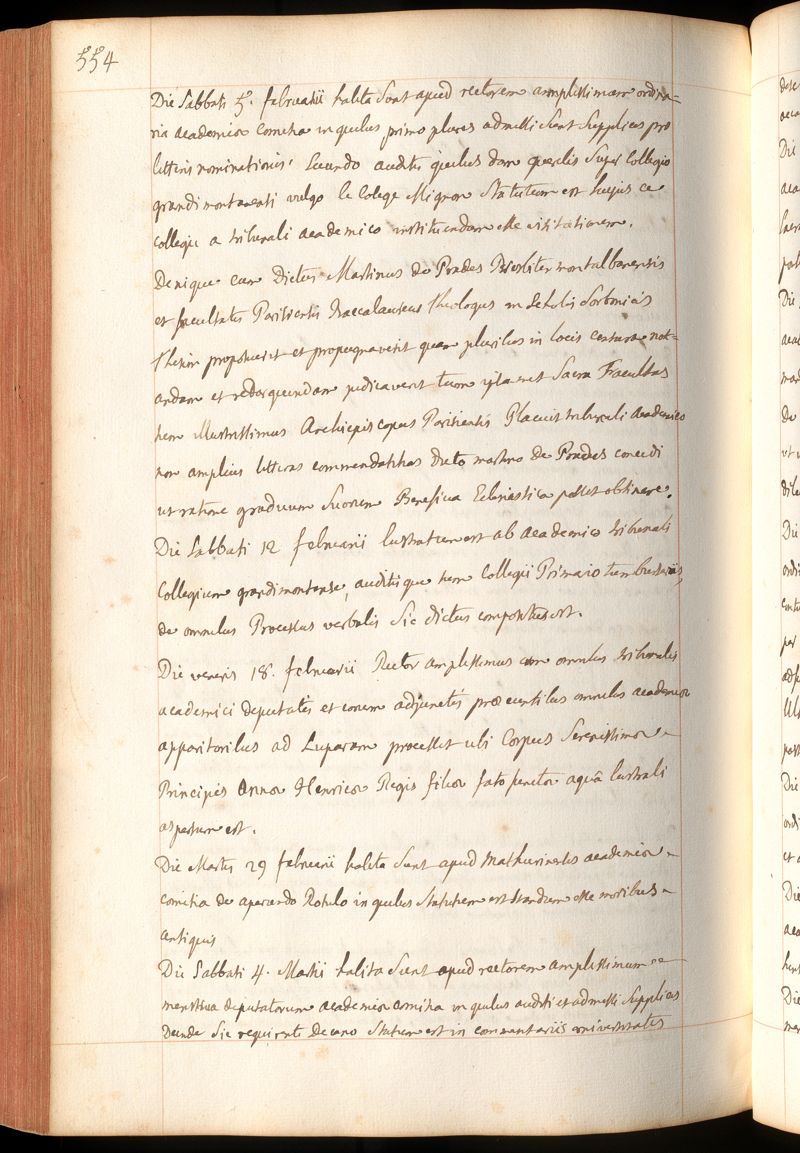 554
Die Sabbati 5. februarii habita sunt apud rectorem amplissimum ordina=
ria academiæ comitia in quibus primo plures admissi sunt supplices pro
litteris nominationis, secundo auditis quibus dam querelis super Collegio
grandimontanensi vulgo le College Mignon statutum est hujus ce
collegii a tribunali academico instituendam esse visitationem.
Denique cum Dictus Martinus de Prades Presbiter montalbanensis
et facultatis Parisiensis Baccalaureus theologus in scholis Sorbonicis
thesim proposuerit et propugnaverit quam pluribus in locis censura not=
andam et redarguendam judicaverit tum ipsamet Sacra Facultas
tum illustrissimus Archiepiscopus Parisiensis Placuit tribunali academico
non amplius litteras commendatitias dicto martino de Prades concedi
ut ratione graduum suorum Beneficia Eclesiastica posset obtinere.
Die Sabbati 12 februarii lustratum est ab academico tribunali
Collegium grandimontense, auditisque tum Collegii Primario tum bursariis,
de omnibus Processus verbalis sic dictus compositus est.
Die veneris 18. februarii Rector amplissimus cum omnibus tribunalis
academici deputatis et eorum adjunctis præeuntibus omnibus academiæ
apparitoribus ad Luparam processit ubi Corpus Serenissimæ
Principis Annæ Henricæ Regis filiæ fato functæ aquâ lustrali
aspersum est.
Die Martis 29 februarii habita sunt apud Mathurinenses academiæ
comitia de aperiendo Rotulo in quibus statutum est standum esse moribus
antiquis
Die Sabbati 4. Martii habita sunt apud rectorem amplissimum
menstrua deputatorum academiæ comitia in quibus auditi et admissi supplices
Deinde sic requirente decano statutum est in commentariis universitatis